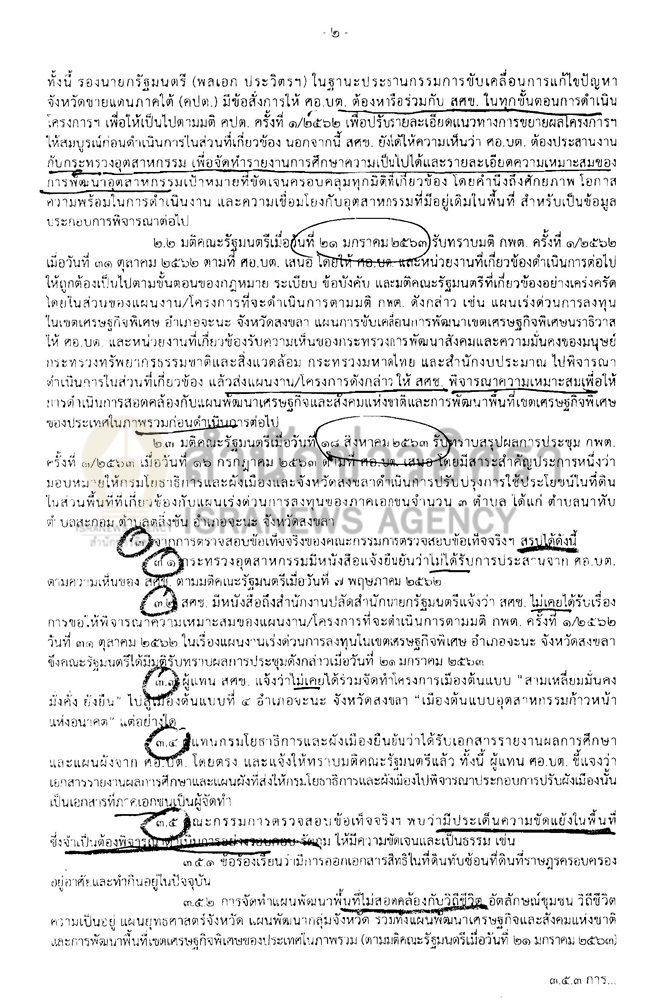 - ๒ -
ทั้งนี้ รองนายกรัฐมนตรี (พลเอก ประวิตรฯ) ในฐานะประธานกรรมการขับเคลื่อนการแก้ไขปัญหา
จังหวัดชายแดนภาคใต้ (คปต.) มีข้อสั่งการให้ ศอ.บต. ต้องหารือร่วมกับ สศช. ในทุกขั้นตอนการดำเนิน
โครงการฯ เพื่อให้เป็นไปตามมติ คปต. ครั้งที่ ๑/๒๕๖๒ เพื่อปรับรายละเอียดแนวทางการขยายผลโครงการฯ
ให้สมบูรณ์ก่อนดำเนินการในส่วนที่เกี่ยวข้อง นอกจากนี้ สศช. ยังได้ให้ความเห็นว่า ศอ.บต. ต้องประสานงาน
กับกระทรวงอุตสาหกรรม เพื่อจัดทำรายงานการศึกษาความเป็นไปได้และรายละเอียดความเหมาะสมของ
การพัฒนาอุตสาหกรรมเป้าหมายที่ชัดเจนครอบคลุมทุกมิติที่เกี่ยวข้อง โดยคำนึงถึงศักยภาพ โอกาส
ความพร้อมในการดำเนินงาน และความเชื่อมโยงกับอุตสาหกรรมที่มีอยู่เดิมในพื้นที่ สำหรับเป็นข้อมูล
ประกอบการพิจารณาต่อไป
๒.๒ มติคณะรัฐมนตรีเมื่อวันที่ ๒๑ มกราคม ๒๕๖๓ รับทราบมติ กพต. ครั้งที่ ๑/๒๕๖๒
เมื่อวันที่ ๓๑ ตุลาคม ๒๕๖๒ ตามที่ ศอ.บต. เสนอ โดยให้ ศอ.บต และหน่วยงานที่เกี่ยวข้องดำเนินการต่อไป
ให้ถูกต้องเป็นไปตามขั้นตอนของกฎหมาย ระเบียบ ข้อบังคับ และมติคณะรัฐมนตรีที่เกี่ยวข้องอย่างเคร่งครัด
โดยในส่วนของแผนงาน/โครงการที่จะดำเนินการตามมติ กพต. ดังกล่าว เช่น แผนเร่งด่วนการลงทุน
ในเขตเศรษฐกิจพิเศษ อำเภอจะนะ จังหวัดสงขลา แผนการขับเคลื่อนการพัฒนาเขตเศรษฐกิจพิเศษนราธิวาส
ให้ ศอ.บต. และหน่วยงานที่เกี่ยวข้องรับความเห็นของกระทรวงการพัฒนาสังคมและความมั่นคงของมนุษย์
กระทรวงทรัพยากรธรรมชาติและสิ่งแวดล้อม กระทรวงมหาดไทย และสำนักงบประมาณ ไปพิจารณา
ดำเนินการในส่วนที่เกี่ยวข้อง แล้วส่งแผนงาน/โครงการดังกล่าว ให้ สศช. พิจารณาความเหมาะสมเพื่อให้
การดำเนินการสอดคล้องกับแผนพัฒนาเศรษฐกิจและสังคมแห่งชาติและการพัฒนาพื้นที่เขตเศรษฐกิจพิเศษ
ของประเทศในภาพรวมก่อนดำเนินการต่อไป
๒.๓ มติคณะรัฐมนตรีเมื่อวันที่ ๑๘ สิงหาคม ๒๕๖๓ รับทราบสรุปผลการประชุม กพต.
ครั้งที่ ๓/๒๕๖๓ เมื่อวันที่ ๑๖ กรกฎาคม ๒๕๖๓ ตามที่ ศอ.บต. เสนอ โดยมีสาระสำคัญประการหนึ่งว่า
มอบหมายให้กรมโยธาธิการและผังเมืองและจังหวัดสงขลาดำเนินการปรับปรุงการใช้ประโยชน์ในที่ดิน
ในส่วนพื้นที่ที่เกี่ยวข้องกับแผนเร่งด่วนการลงทุนของภาคเอกชนจำนวน ๓ ตำบล ได้แก่ ตำบลนาทับ
ตำบลสะกอม ตำบลตลิ่งชัน อำเภอจะนะ จังหวัดสงขลา
สำนักข่าวอิศรา
ISRA NEWS AGENCY
๓. จากการตรวจสอบข้อเท็จจริงของคณะกรรมการตรวจสอบข้อเท็จจริงฯ สรุปได้ดังนี้
๓.๑ กระทรวงอุตสาหกรรมมีหนังสือแจ้งยืนยันว่าไม่ได้รับการประสานจาก ศอ.บต.
ตามความเห็นของ สศช. ตามมติคณะรัฐมนตรีเมื่อวันที่ ๗ พฤษภาคม ๒๕๖๒
๓.๒ สศช. มีหนังสือถึงสำนักงานปลัดสำนักนายกรัฐมนตรีแจ้งว่า สศช. ไม่เคยได้รับเรื่อง
การขอให้พิจารณาความเหมาะสมของแผนงาน/โครงการที่จะดำเนินการตามมติ กพต. ครั้งที่ ๑/๒๕๖๒
วันที่ ๓๑ ตุลาคม ๒๕๖๒ ในเรื่องแผนงานเร่งด่วนการลงทุนในเขตเศรษฐกิจพิเศษ อำเภอจะนะ จังหวัดสงขลา
ซึ่งคณะรัฐมนตรีได้มีมติรับทราบผลการประชุมดังกล่าวเมื่อวันที่ ๒๑ มกราคม ๒๕๖๓
๓.๓ ผู้แทน สศช. แจ้งว่าไม่เคยได้ร่วมจัดทำโครงการเมืองต้นแบบ "สามเหลี่ยมมั่นคง
มั่งคั่ง ยั่งยืน" ไปสู่เมืองต้นแบบที่ ๔ อำเภอจะนะ จังหวัดสงขลา "เมืองต้นแบบอุตสาหกรรมก้าวหน้า
แห่งอนาคต" แต่อย่างใด
๓.๔ ผู้แทนกรมโยธาธิการและผังเมืองยืนยันว่าได้รับเอกสารรายงานผลการศึกษา
และแผนผังจาก ศอ.บต. โดยตรง และแจ้งให้ทราบมติคณะรัฐมนตรีแล้ว ทั้งนี้ ผู้แทน ศอ.บต. ชี้แจงว่า
เอกสารรายงานผลการศึกษาและแผนผังที่ส่งให้กรมโยธาธิการและผังเมืองไปพิจารณาประกอบการปรับผังเมืองนั้น
เป็นเอกสารที่ภาคเอกชนเป็นผู้จัดทำ
๓.๕ คณะกรรมการตรวจสอบข้อเท็จจริงฯ พบว่ามีประเด็นความขัดแย้งในพื้นที่
ซึ่งจำเป็นต้องพิจารณาดำเนินการอย่างรอบคอบ รัดกุม ให้มีความชัดเจนและเป็นธรรม เช่น
๓.๕.๑ ข้อร้องเรียนว่ามีการออกเอกสารสิทธิในที่ดินทับซ้อนที่ดินที่ราษฎรครอบครอง
อยู่อาศัยและทำกินอยู่ในปัจจุบัน
๓.๕.๒ การจัดทำแผนพัฒนาพื้นที่ไม่สอดคล้องกับวิถีชีวิต อัตลักษณ์ชุมชน วิถีชีวิต
ความเป็นอยู่ แผนยุทธศาสตร์จังหวัด แผนพัฒนากลุ่มจังหวัด รวมทั้งแผนพัฒนาเศรษฐกิจและสังคมแห่งชาติ
และการพัฒนาพื้นที่เขตเศรษฐกิจพิเศษของประเทศในภาพรวม (ตามมติคณะรัฐมนตรีเมื่อวันที่ ๒๑ มกราคม ๒๕๖๓)
๓.๕.๓ การ...